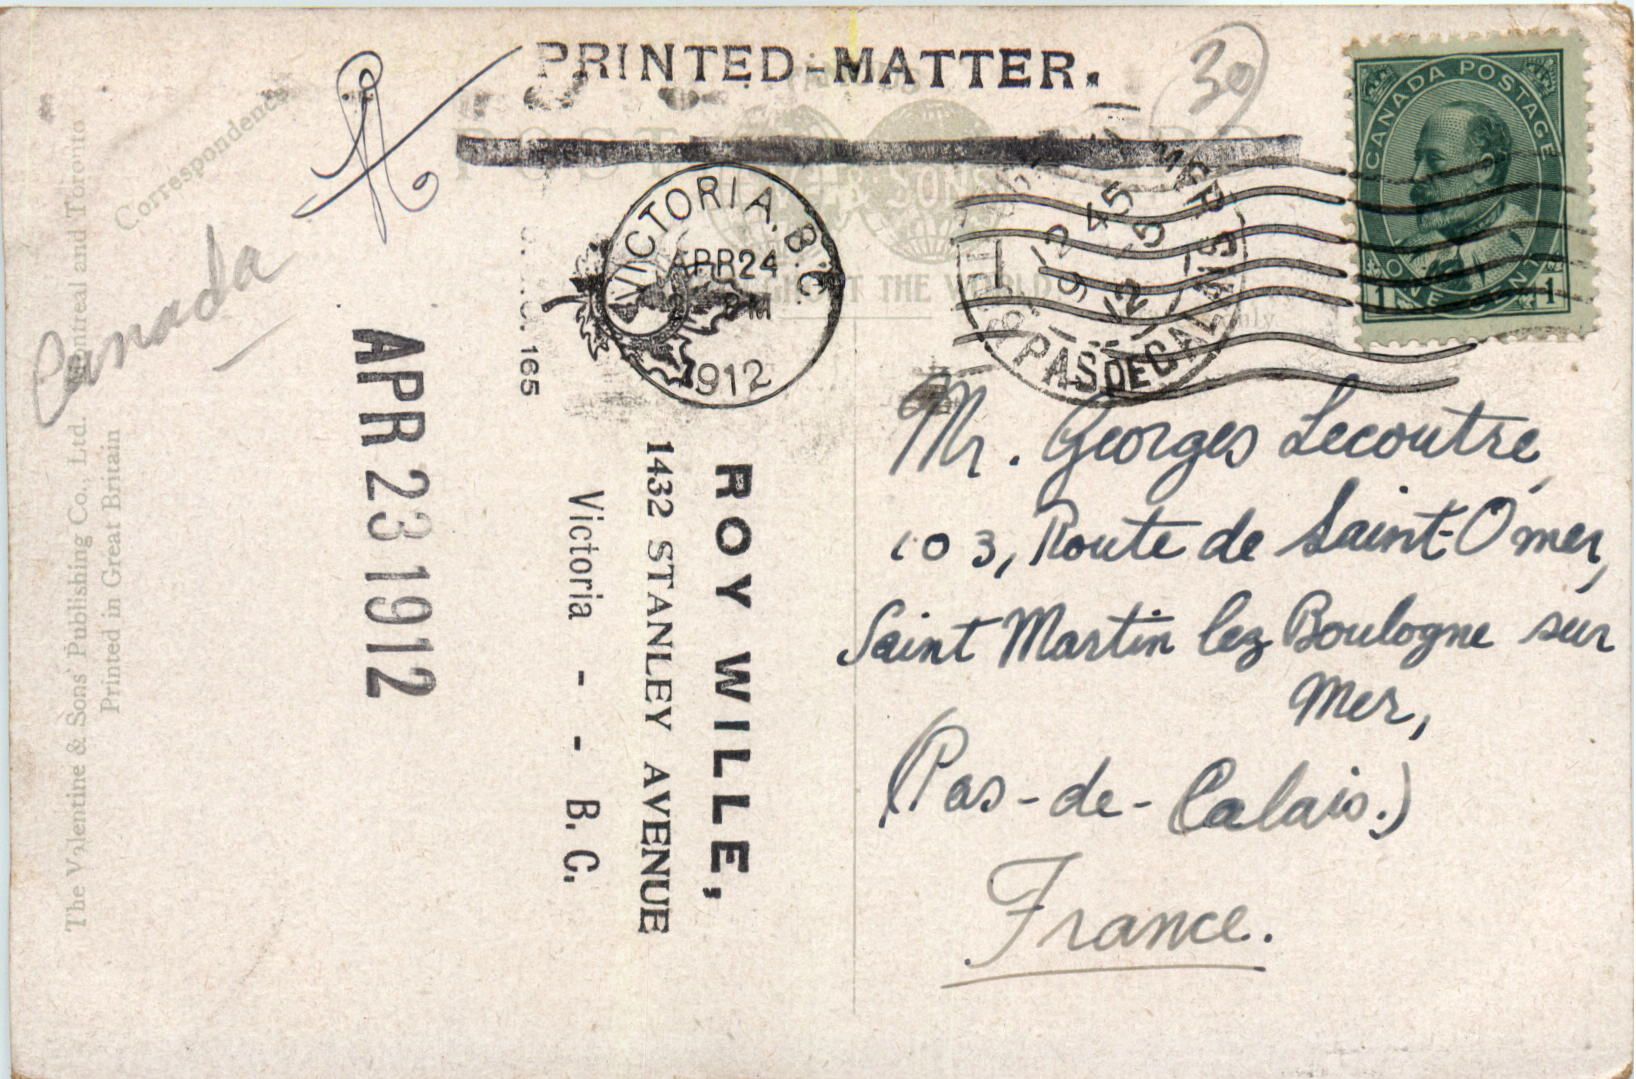 PRINTED-MATTER.
30
POST
SONS
THE WORLD
CANADA POSTAGE
ONE CENT
1 1
VICTORIA. B.C.
APR 24
PM
1912
PAS DE CALAIS
Correspondence
Canada
APR 23 1912
165
ROY WILLE,
1432 STANLEY AVENUE
Victoria - - B. C.
Mr. Georges Lecoutre,
103, Route de Saint-Omer,
Saint Martin lez Boulogne sur
Mer,
(Pas-de-Calais.)
France.
The Valentine & Sons' Publishing Co., Ltd. Montreal and Toronto
Printed in Great Britain